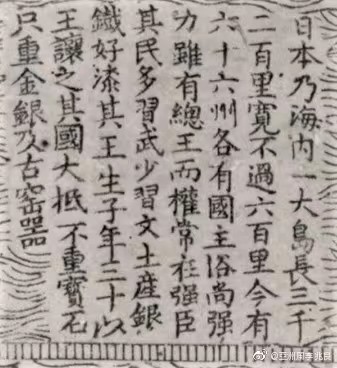 日本乃海内一大島長三千
二百里寬不過六百里今有
六十六州各有國主俗尚强
力雖有總王而權常在强臣
其民多習武少習文土産銀
鐵好漆其王生子年三十以
王讓之其國大抵不重寶石
只重金銀及古窑器
@亚州周李兆良